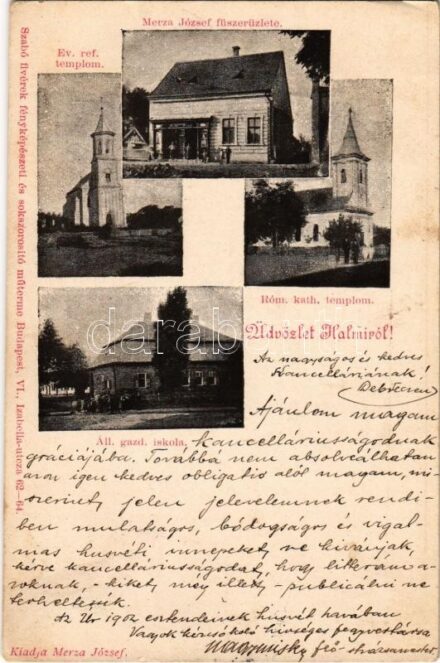 Merza József fűszerüzlete.
Ev. ref.
templom.
Szabó fivérek fényképészeti és sokszorosító műterme Budapest, VI., Izabella-utcza 62–64.
Róm. kath. templom.
Üdvözlet Halmiról!
darabanth
Az nagyságos és kedves
Kancelláriának!
Debreczen
Ajánlom magam
Áll. gazd. iskola.
kancelláriusságodnak
gráciájába. Továbbá nem absolválhatván
azon igen kedves obligatio alól magam, mi-
szerint jelen jelevelemnek rendi-
ben mulatságos, bódogságos és vigal-
mas husvéti innepeket ne kivánjak,
kérve kancelláriusságodat, hogy litterám a-
zoknak, - kiket még illet, - publicálni ne
terheltessék.
Az Úr 1902 esztendeinek husvét havában
Vagyok hűséges fegyvertársa
Kiadja Merza József.